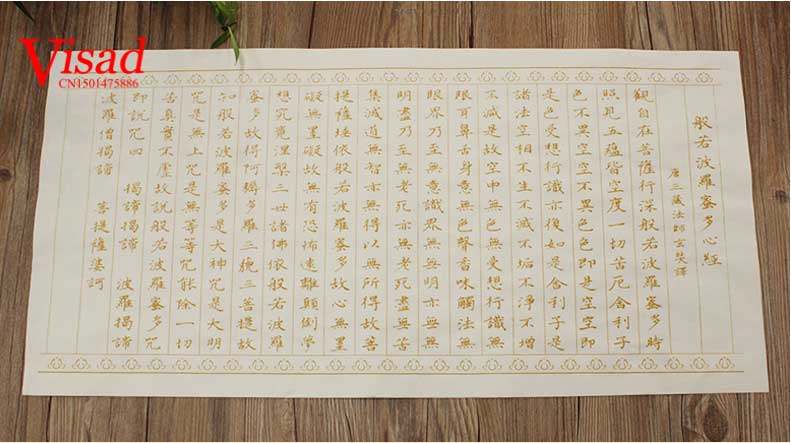 Visad
CN1501475886
般若波羅蜜多心經
唐三藏法師玄奘譯
觀自在菩薩行深般若波羅蜜多時
照見五蘊皆空度一切苦厄舍利子
色不異空空不異色色即是空空即
是色受想行識亦復如是舍利子是
諸法空相不生不滅不垢不淨不增
不減是故空中無色無受想行識無
眼耳鼻舌身意無色聲香味觸法無
眼界乃至無意識界無無明亦無無
明盡乃至無老死亦無老死盡無苦
集滅道無智亦無得以無所得故菩
提薩埵依般若波羅蜜多故心無罣
礙無罣礙故無有恐怖遠離顛倒夢
想究竟涅槃三世諸佛依般若波羅
蜜多故得阿耨多羅三藐三菩提故
知般若波羅蜜多是大神咒是大明
咒是無上咒是無等等咒能除一切
苦真實不虛故說般若波羅蜜多咒
即說咒曰 揭諦揭諦 波羅揭諦
波羅僧揭諦 菩提薩婆訶